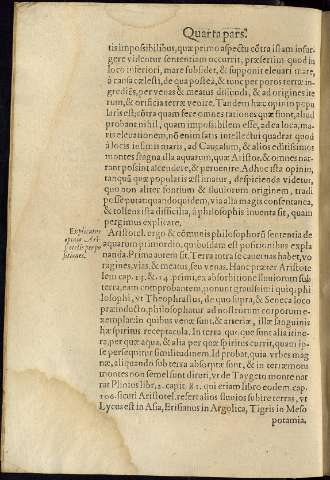 Quarta pars.
tis impossibilibus, quæ primo aspectu cõtra istam insur-
gere videntur sententiam occurrit, præsertim quod in
loco inferiori, mare subsidet, & supponit eleuari mare,
à causa cælesti, de qua postea, & tunc per poros terræ in-
grediẽs, per venas & meatus diffundi, & ad origines ite
rum, & orificia terræ venire. Tandem hæc opinio popu
laris est; cõtra quam fere omnes rationes quæ fiunt, aliud
probant nihil, quam impossibilem esse, ad ea loca, ma-
ris eleuationem, nõ enim satis intellectui quadrat quod
à locis infimis maris, ad Caucasum, & alios editissimos
montes stagna illa aquarum, quæ Aristot. & omnes nar-
rant possint ascendere, & peruenire. Adhoc ista opinio,
tanquã quæ popularis æstimatur, despicienda videtur,
quo non aliter fontium & fluuiorum originem, tradi
posse putant quandoquidem, via alia magis consentanea,
& tollens ista difficilia, à philosophis inuenta sit, quam
pergimus explicare.
Explicatur
opinio Ari
stotelis per po
sitiones.
Aristotel. ergo & cõmunis philosophorũ sententia de
aquarum primordio, quibusdam est positionibus expla
nanda. Prima autem sit. Terra intra se cauernas habet, vo
ragines, vias, & meatus, seu venas. Hanc præter Aristote
lem cap. 13. & 14. prima, ex absorbitione fluuiorum sub
terra, eam comprobantem, ponunt grauissimi quiq; phi
losophi, vt Theophrastus, de quo supra, & Seneca loco
præinducto, philosophatur ad nostrorum corporum e-
xemplar: in quibus venæ sunt, & arteriæ, illæ sanguinis
hæ spiritus receptacula. In terra quoque sunt alia itine-
ra, per quæ aqua, & alia per quæ spiritus currit, quam ip-
se persequitur similitudinem. Id probat, quia vrbes mag
næ, aliquando sub terra absorptæ sunt, & in terræ motu
montes non semel sunt diruti, vt de Taygeto monte nar
rat Plinius libr. 2. capit. 81. qui etiam libro eodem. cap.
106. sicuti Aristotel. refert alios fluuios subire terras, vt
Lycus est in Asia, Erisanus in Argolica, Tigris in Meso
potamia.